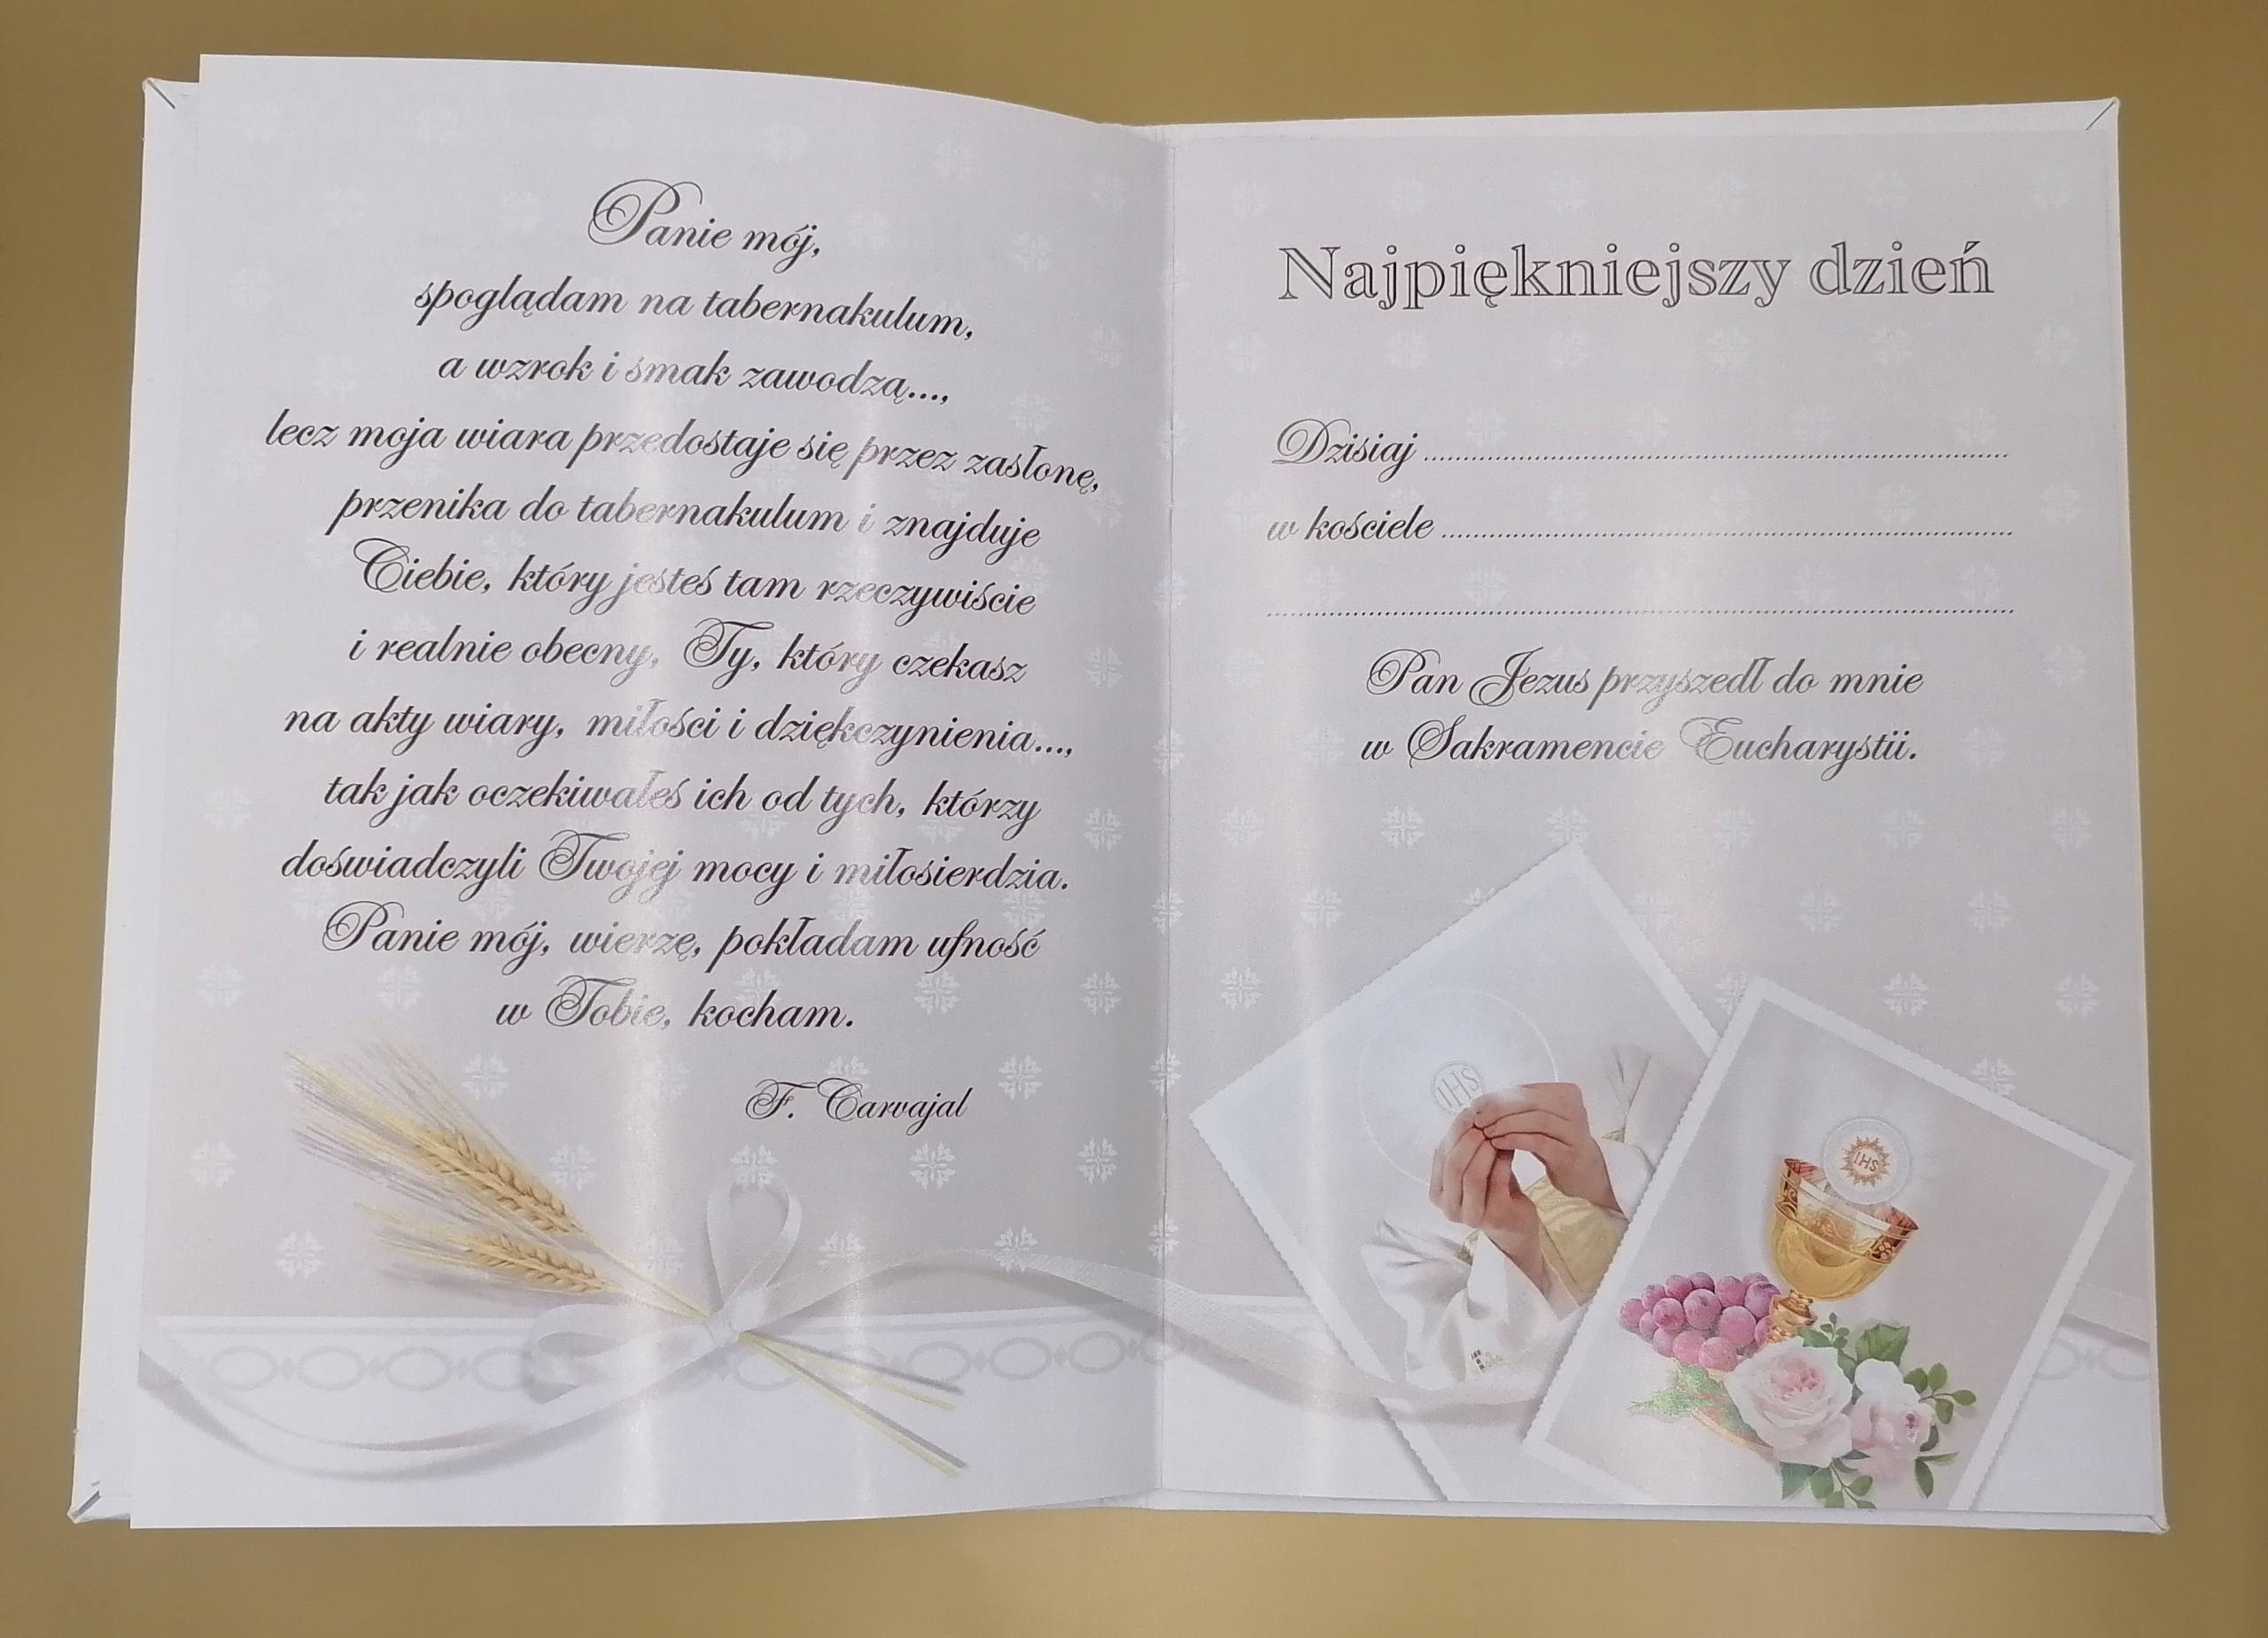 Panie mój,
spoglądam na tabernakulum,
a wzrok i smak zawodzą...,
lecz moja wiara przedostaje się przez zasłonę,
przenika do tabernakulum i znajduje
Ciebie, który jesteś tam rzeczywiście
i realnie obecny, Ty, który czekasz
na akty wiary, miłości i dziękczynienia...,
tak jak oczekiwałeś ich od tych, którzy
doświadczyli Twojej mocy i miłosierdzia.
Panie mój, wierzę, pokładam ufność
w Tobie, kocham.
F. Carvajal
Najpiękniejszy dzień
Dzisiaj
w kościele
Pan Jezus przyszedł do mnie
w Sakramencie Eucharystii.
IHS
IHS